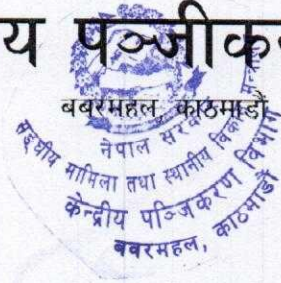 य पञ्जीकर
बबरमहल, काठमाडौं
नेपाल सरकार
सङ्घीय मामिला तथा स्थानीय विकास मन्त्रालय
केन्द्रीय पञ्जिकरण विभाग
बबरमहल, काठमाडौं